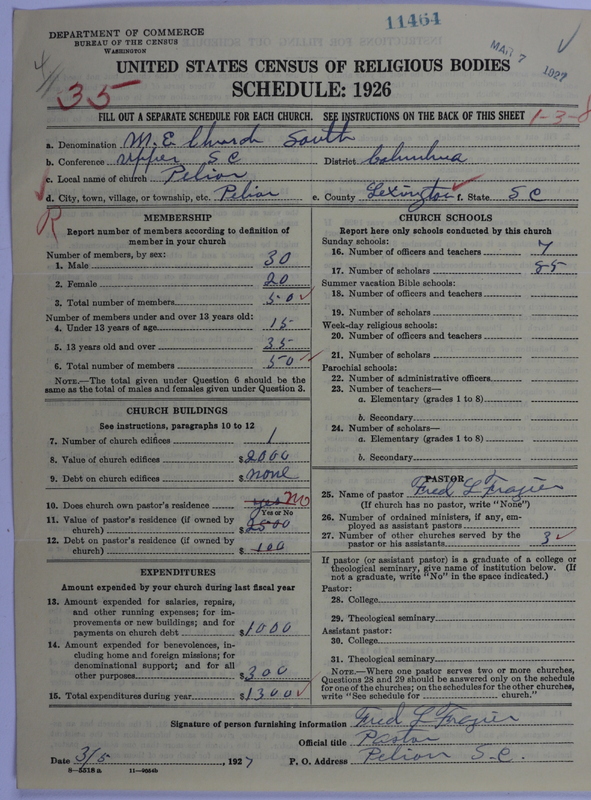 11464
MAR 7 1927
DEPARTMENT OF COMMERCE
BUREAU OF THE CENSUS
WASHINGTON
UNITED STATES CENSUS OF RELIGIOUS BODIES
SCHEDULE: 1926
35
FILL OUT A SEPARATE SCHEDULE FOR EACH CHURCH. SEE INSTRUCTIONS ON THE BACK OF THIS SHEET
1-3-8
a. Denomination M.E. Church South
b. Conference Upper S C District Columbia
c. Local name of church Pelion
d. City, town, village, or township, etc. Pelion e. County Lexington f. State S C
R
MEMBERSHIP
Report number of members according to definition of member in your church
Number of members, by sex:
1. Male 30
2. Female 20
3. Total number of members 50
Number of members under and over 13 years old:
4. Under 13 years of age 15
5. 13 years old and over 35
6. Total number of members 50
NOTE.—The total given under Question 6 should be the
same as the total of males and females given under Question 3.
CHURCH BUILDINGS
See instructions, paragraphs 10 to 12
7. Number of church edifices 1
8. Value of church edifices $2000
9. Debt on church edifices $none
10. Does church own pastor's residence yes No
Yes or No
11. Value of pastor's residence (if owned by
church) $2500
12. Debt on pastor's residence (if owned by
church) $100
EXPENDITURES
Amount expended by your church during last fiscal year
13. Amount expended for salaries, repairs,
and other running expenses; for im-
provements or new buildings; and for
payments on church debt $1000
14. Amount expended for benevolences, in-
cluding home and foreign missions; for
denominational support; and for all
other purposes $300
15. Total expenditures during year $1300
CHURCH SCHOOLS
Report here only schools conducted by this church
Sunday schools:
16. Number of officers and teachers 7
17. Number of scholars 85
Summer vacation Bible schools:
18. Number of officers and teachers
19. Number of scholars
Week-day religious schools:
20. Number of officers and teachers
21. Number of scholars
Parochial schools:
22. Number of administrative officers
23. Number of teachers—
a. Elementary (grades 1 to 8)
b. Secondary
24. Number of scholars—
a. Elementary (grades 1 to 8)
b. Secondary
PASTOR
25. Name of pastor Fred L Frazier
(If church has no pastor, write "None")
26. Number of ordained ministers, if any, em-
ployed as assistant pastors
27. Number of other churches served by the
pastor or his assistants 3
If pastor (or assistant pastor) is a graduate of a college or
theological seminary, give name of institution below. (If
not a graduate, write "No" in the space indicated.)
Pastor:
28. College
29. Theological seminary
Assistant pastor:
30. College
31. Theological seminary
NOTE.—Where one pastor serves two or more churches,
Questions 28 and 29 should be answered only on the schedule
for one of the churches; on the schedules for the other churches,
write "See schedule for church."
Signature of person furnishing information Fred L Frazier
Official title Pastor
Date 3/5, 1927 P. O. Address Pelion S.C.
8—5518a 11—9054b